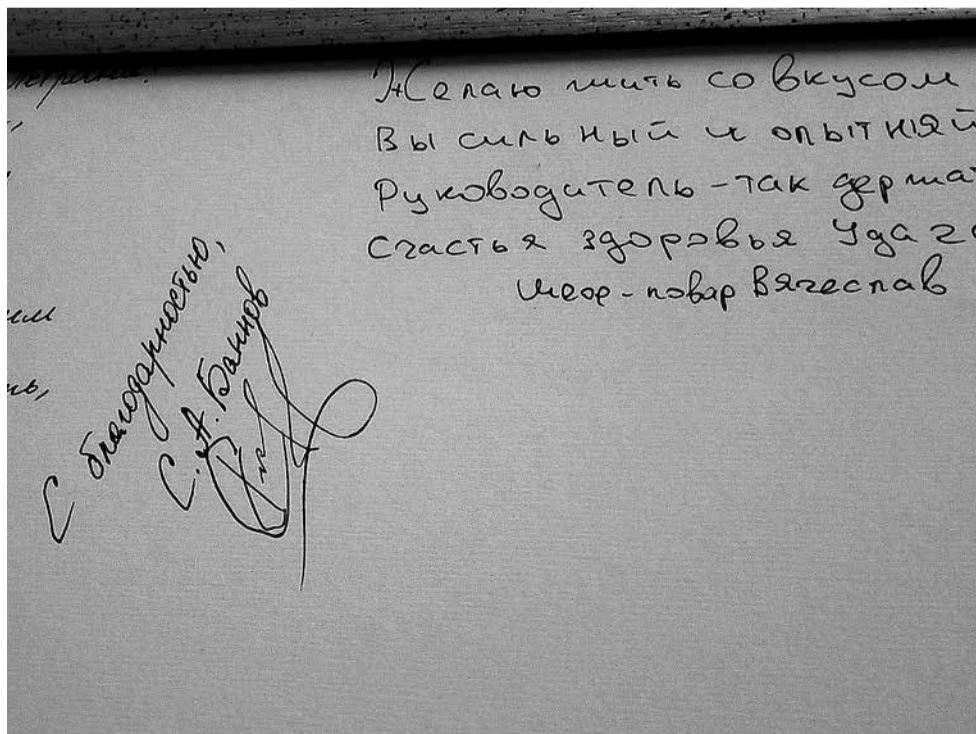 Желаю жить со вкусом
Вы сильный и опытный
Руководитель - так
Счастья здоровья
шеф-повар Вячеслав
С благодарностью,
С. А.